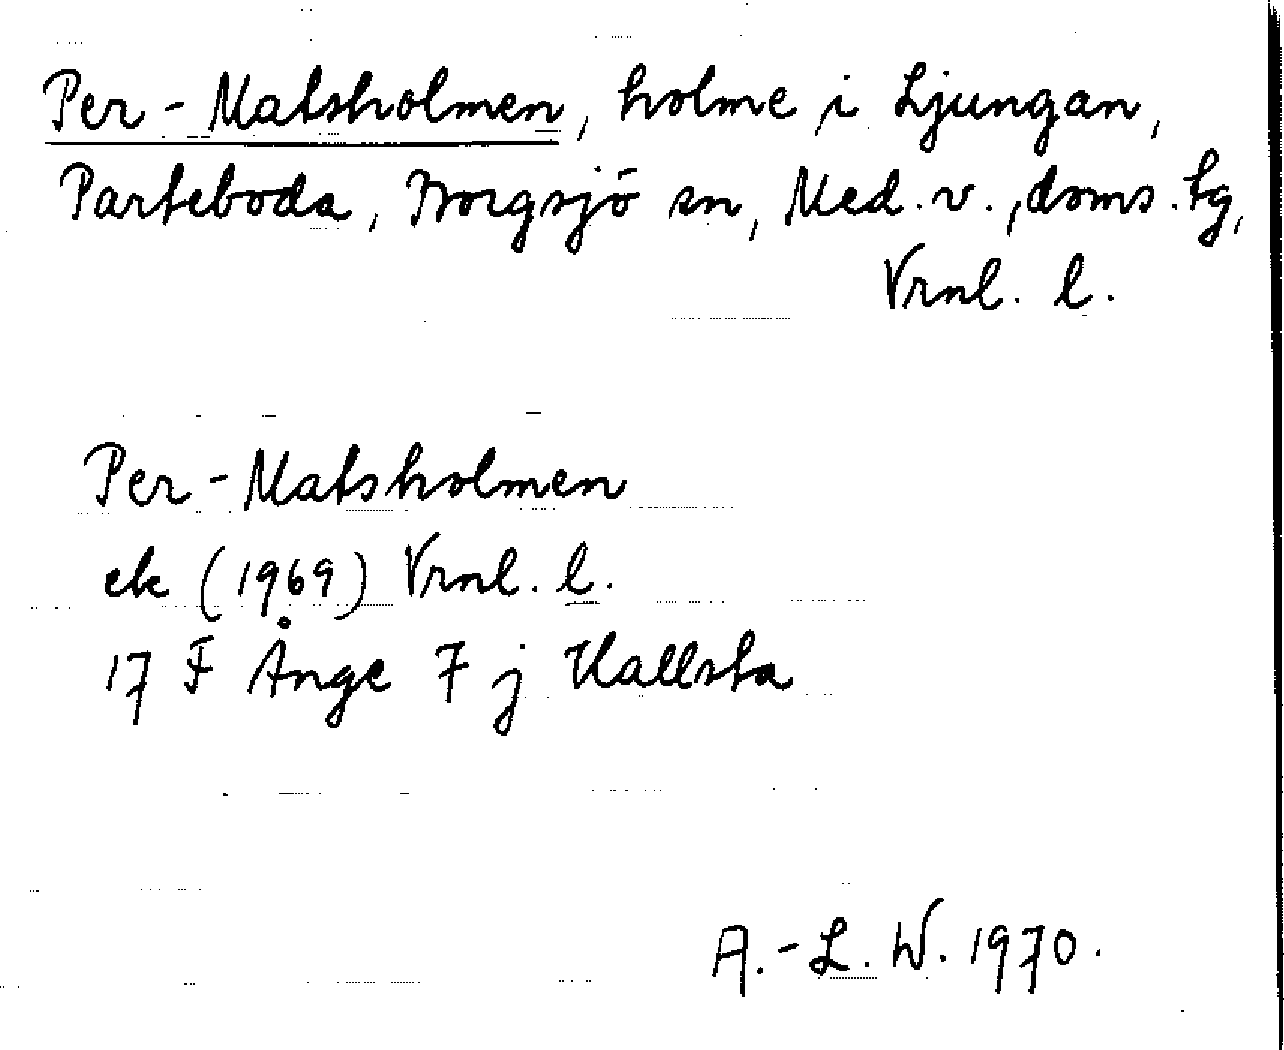 Per-Matsholmen, holme i Ljungan,
Parteboda, Borgsjö sn, Med. v., doms. tg,
Vrnl. l.
Per-Matsholmen
ek (1969) Vrnl. l.
17 F Ånge 7 j Hallsta
A.-L. W. 1970.